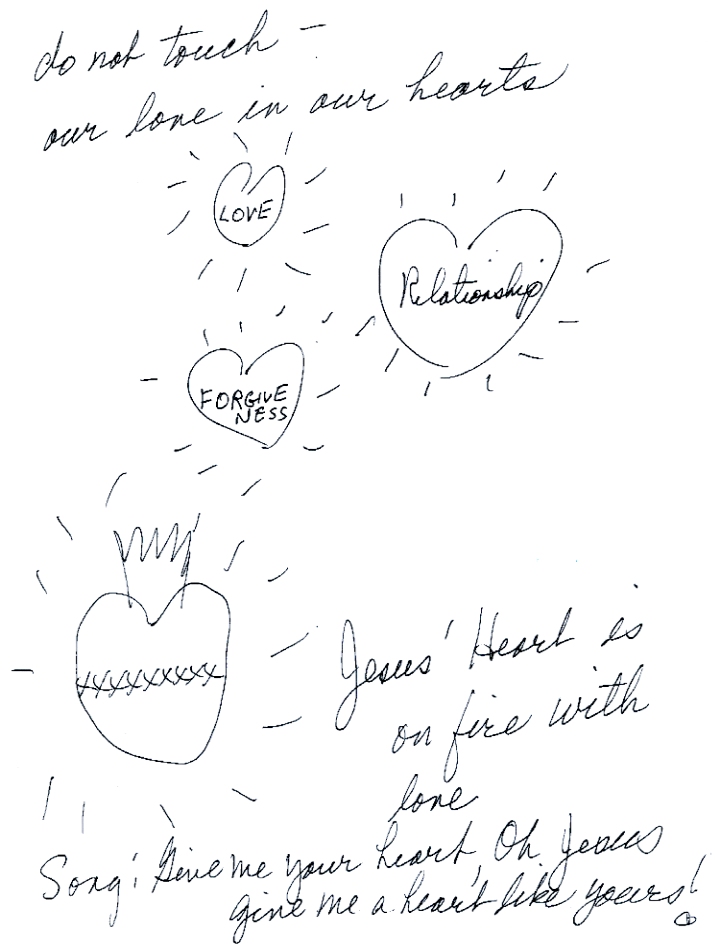 do not touch —
our love in our hearts
LOVE
Relationship
FORGIVE
NESS
xxxxxxxxx
Jesus' Heart is
on fire with
love
Song: Give me your heart, Oh Jesus
give me a heart like yours!